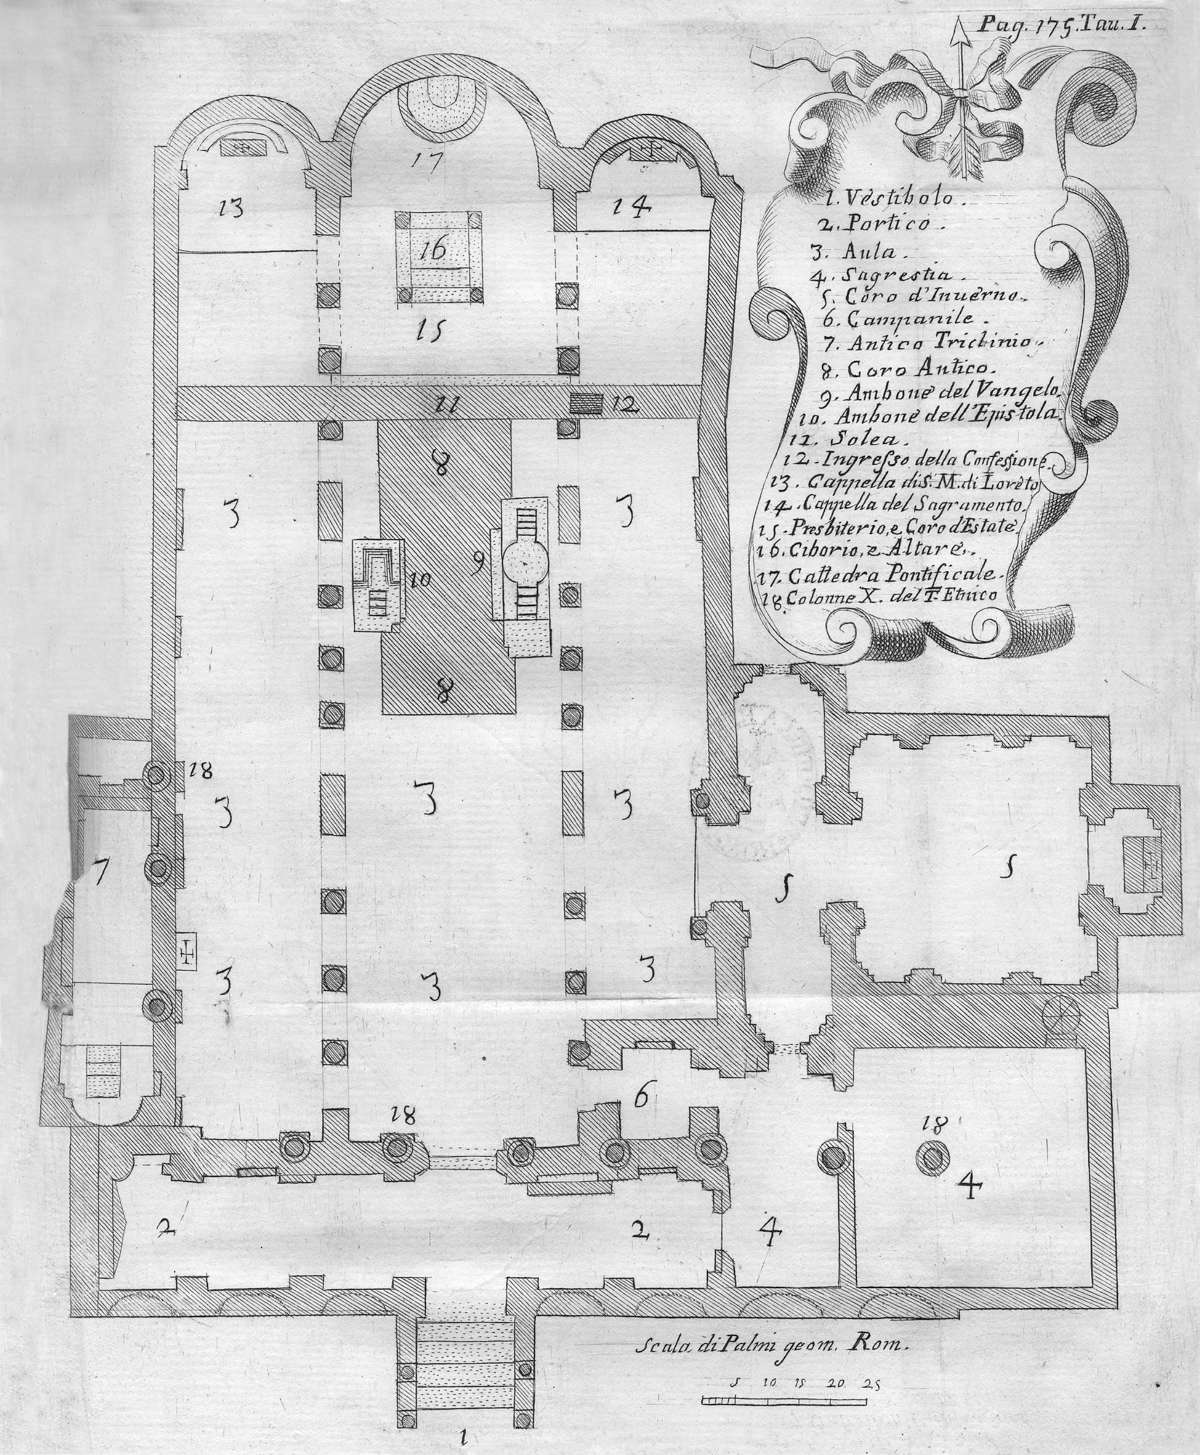 Pag. 175. Tau. I.
1. Vestibolo.
2. Portico.
3. Aula.
4. Sagrestia.
5. Coro d'Inuerno.
6. Campanile.
7. Antico Triclinio.
8. Coro Antico.
9. Ambone del Vangelo.
10. Ambone dell'Epistola.
11. Solea.
12. Ingresso della Confessione.
13. Cappella di S. M. di Loreto
14. Cappella del Sagramento.
15. Presbiterio, e Coro d'Estate.
16. Ciborio, e Altare.
17. Cattedra Pontificale.
18. Colonne X. del T. Etnico
17
13
14
16
15
11
12
8
3
3
9
10
8
18
3
3
3
7
5
5
3
3
3
6
18
18
4
2
2
4
Scala di Palmi geom. Rom.
5 10 15 20 25
1